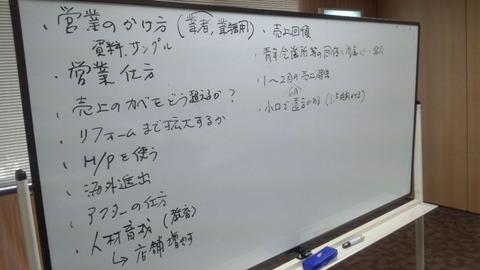 ・営業のかけ方(業者,業種用)
資料,サンプル
・営業仕方
・売上のカベをどう超えるか?
・リフォームまで拡大するか
・H/Pを使う
・海外進出
・アフターの仕方
・人材育成(教育)
↳店舗増やす
・売上回復
・青年会議所等の団体に所属
・1〜2月の売上確保
・小口で